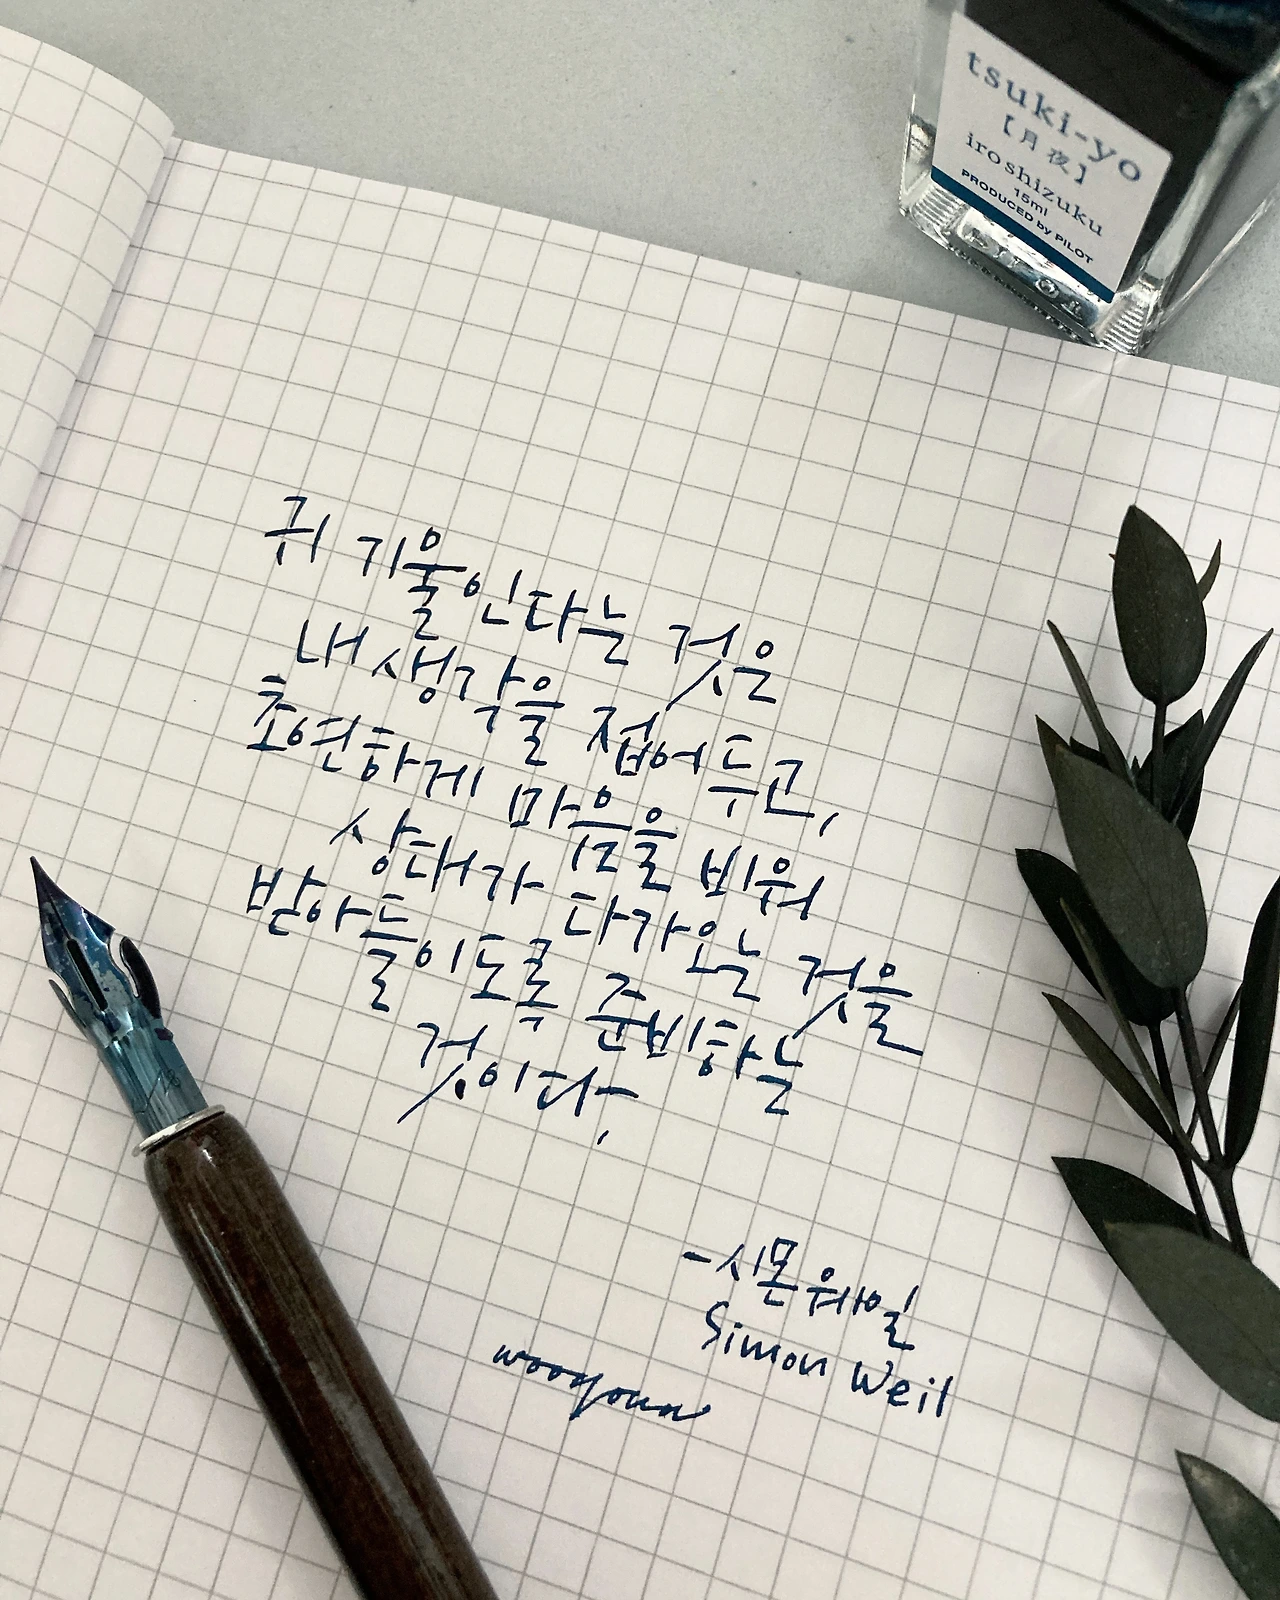 tsuki-yo
【月夜】
iroshizuku
15ml
PRODUCED by PILOT
귀 기울인다는 것은
내 생각을 접어 두고,
초연하게 마음을 비워
상대가 다가오는 것을
받아들이도록 준비하는
것이다,
-시몬 웨일
Simon Weil